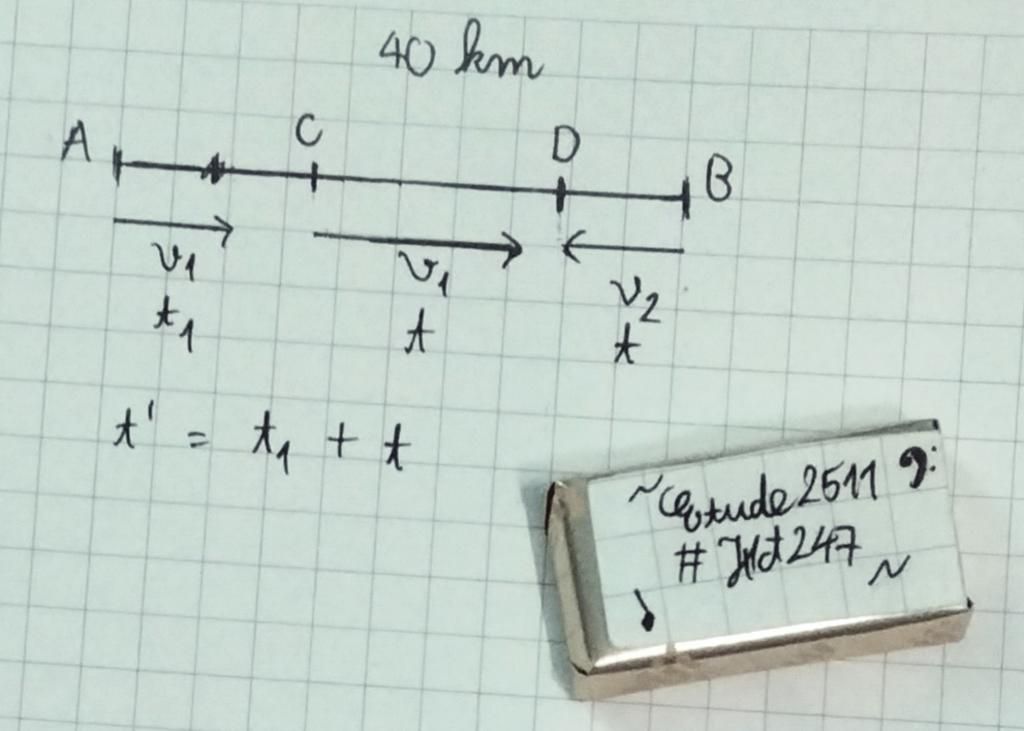 40 km
A C D B
v₁ v₁ v₂
t₁ t t
t' = t₁ + t
~Etude2511 𝄢
# Hdt247 ~
♪